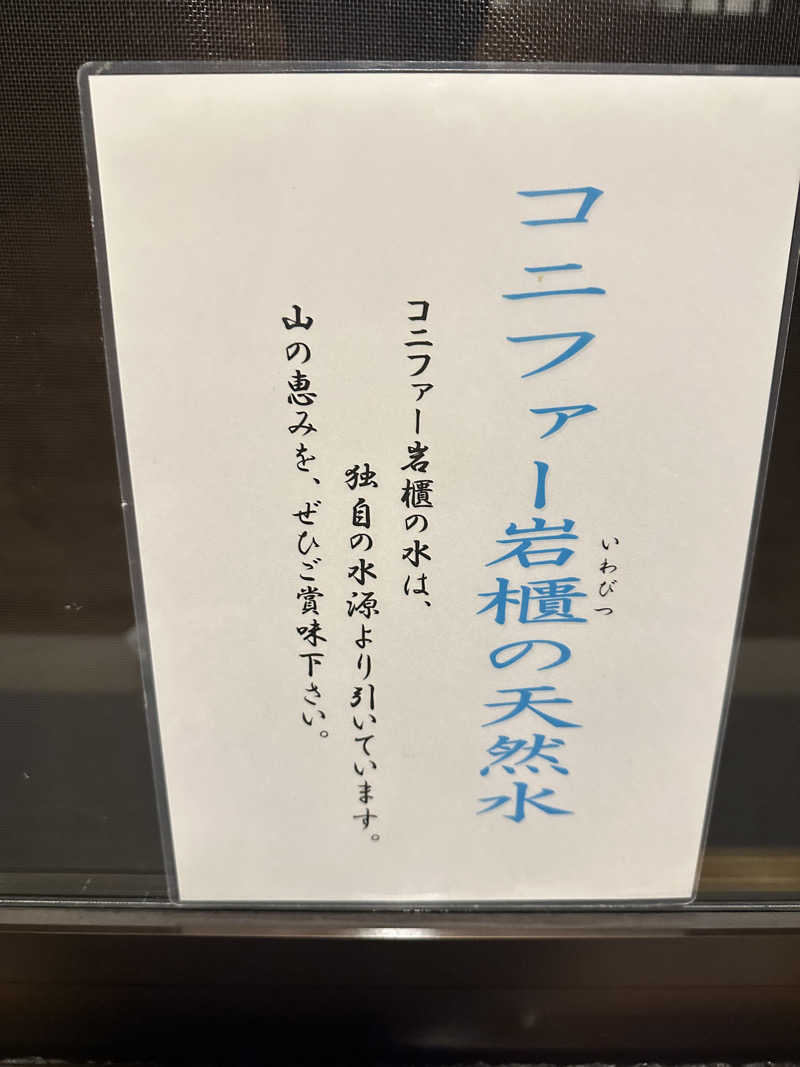 コニファー岩櫃の天然水
いわびつ
コニファー岩櫃の水は、
独自の水源より引いています。
山の恵みを、ぜひご賞味下さい。